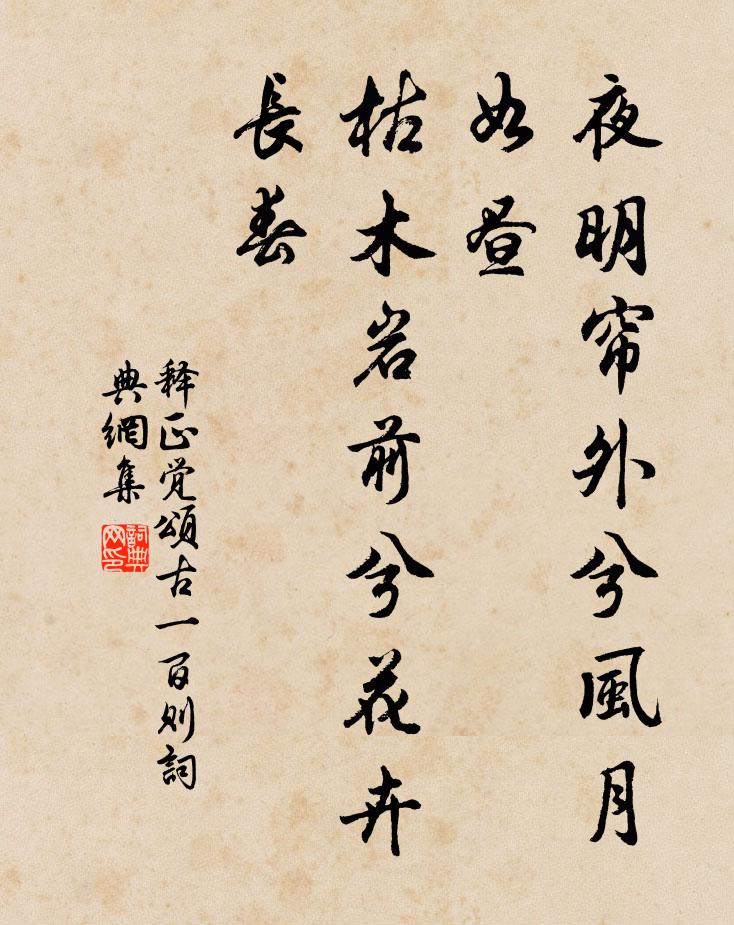 夜明帘外兮風月
如昼
枯木岩前兮花卉
長春
释正觉頌古一百则詞
典網集
詞典网印